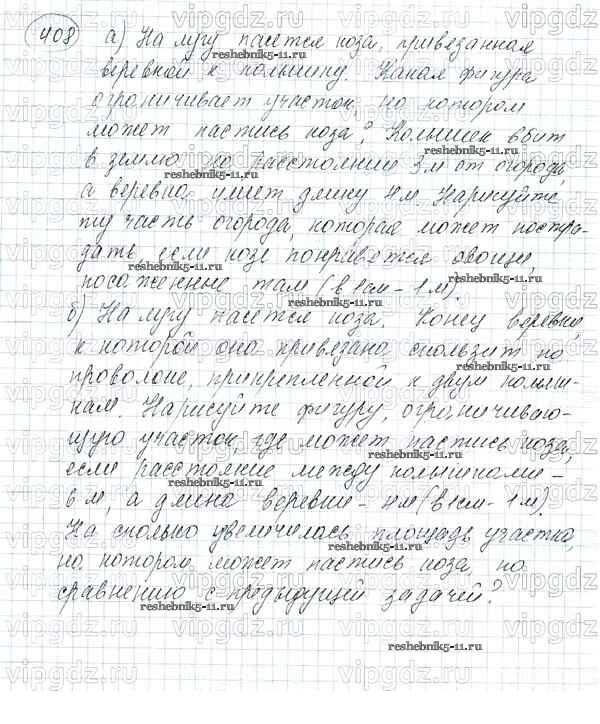 408
а) На лугу пасётся коза, привязанная
верёвкой к колышку. Какая фигура
ограничивает участок, на котором
может пастись коза? Колышек вбит
в землю на расстоянии 3 м от огорода,
а верёвка имеет длину 4 м. Нарисуйте
ту часть огорода, которая может постра-
дать, если козе понравятся овощи,
посаженные там (в 1 см - 1 м).
б) На лугу пасётся коза. Конец верёвки,
к которой она привязана скользит по
проволоке, прикреплённой к двум колыш-
кам. Нарисуйте фигуру, ограничиваю-
щую участок, где может пастись коза,
если расстояние между колышками -
6 м, а длина верёвки - 4 м (в 1 см - 1 м).
На сколько увеличилась площадь участка,
на котором может пастись коза, по
сравнению с предыдущей задачей?
reshebnik5-11.ru
vipgdz